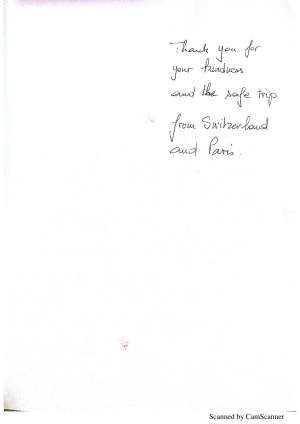 Thank you for
your kindness
and the safe trip
from Switzerland
and Paris.
Scanned by CamScanner